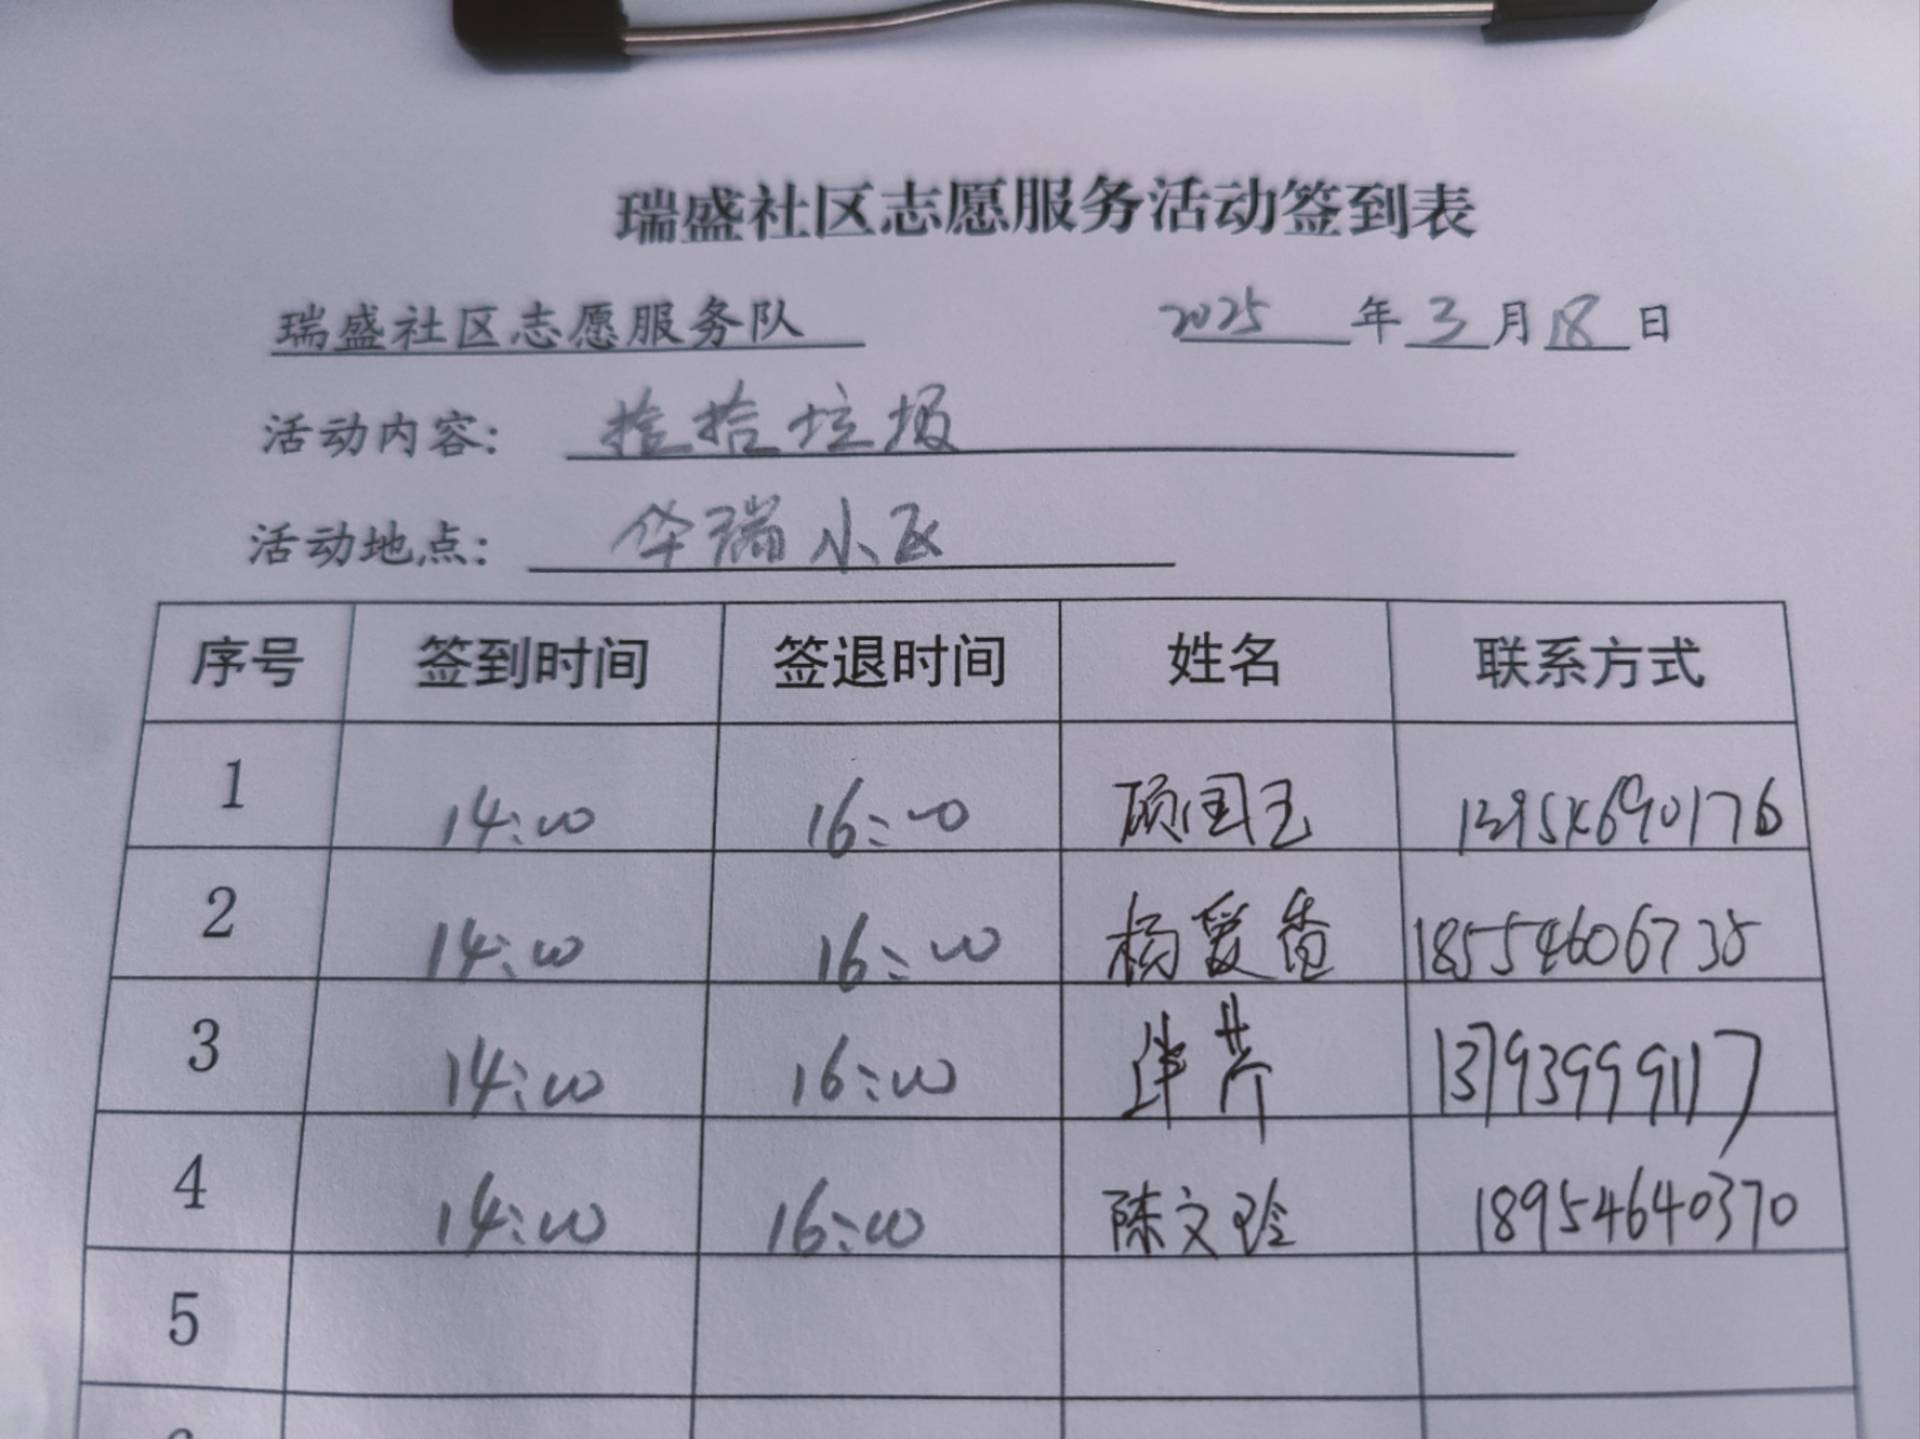 瑞盛社区志愿服务活动签到表
瑞盛社区志愿服务队 2025年3月18日
活动内容: 捡拾垃圾
活动地点: 华瑞小区
序号 签到时间 签退时间 姓名 联系方式
1 14:00 16:00 顾国玉
2 14:00 16:00 杨爱香 18554606735
3 14:00 16:00 芹 13793999117
4 14:00 16:00 陈文玲 18954640370
5